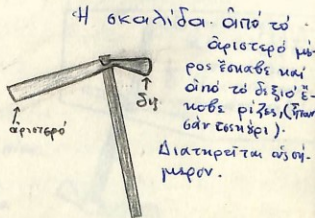 Ἡ σκαλίδα. ἀπό τό
ἀριστερό μέ-
ρος ἔσκαβε καί
ἀπό τό δεξιό ἔ-
κοβε ρίζες, (ἦταν
σάν τσεκούρι).
Διατηρεῖται ὡς σή-
μερον.
ἀριστερό
δεξ